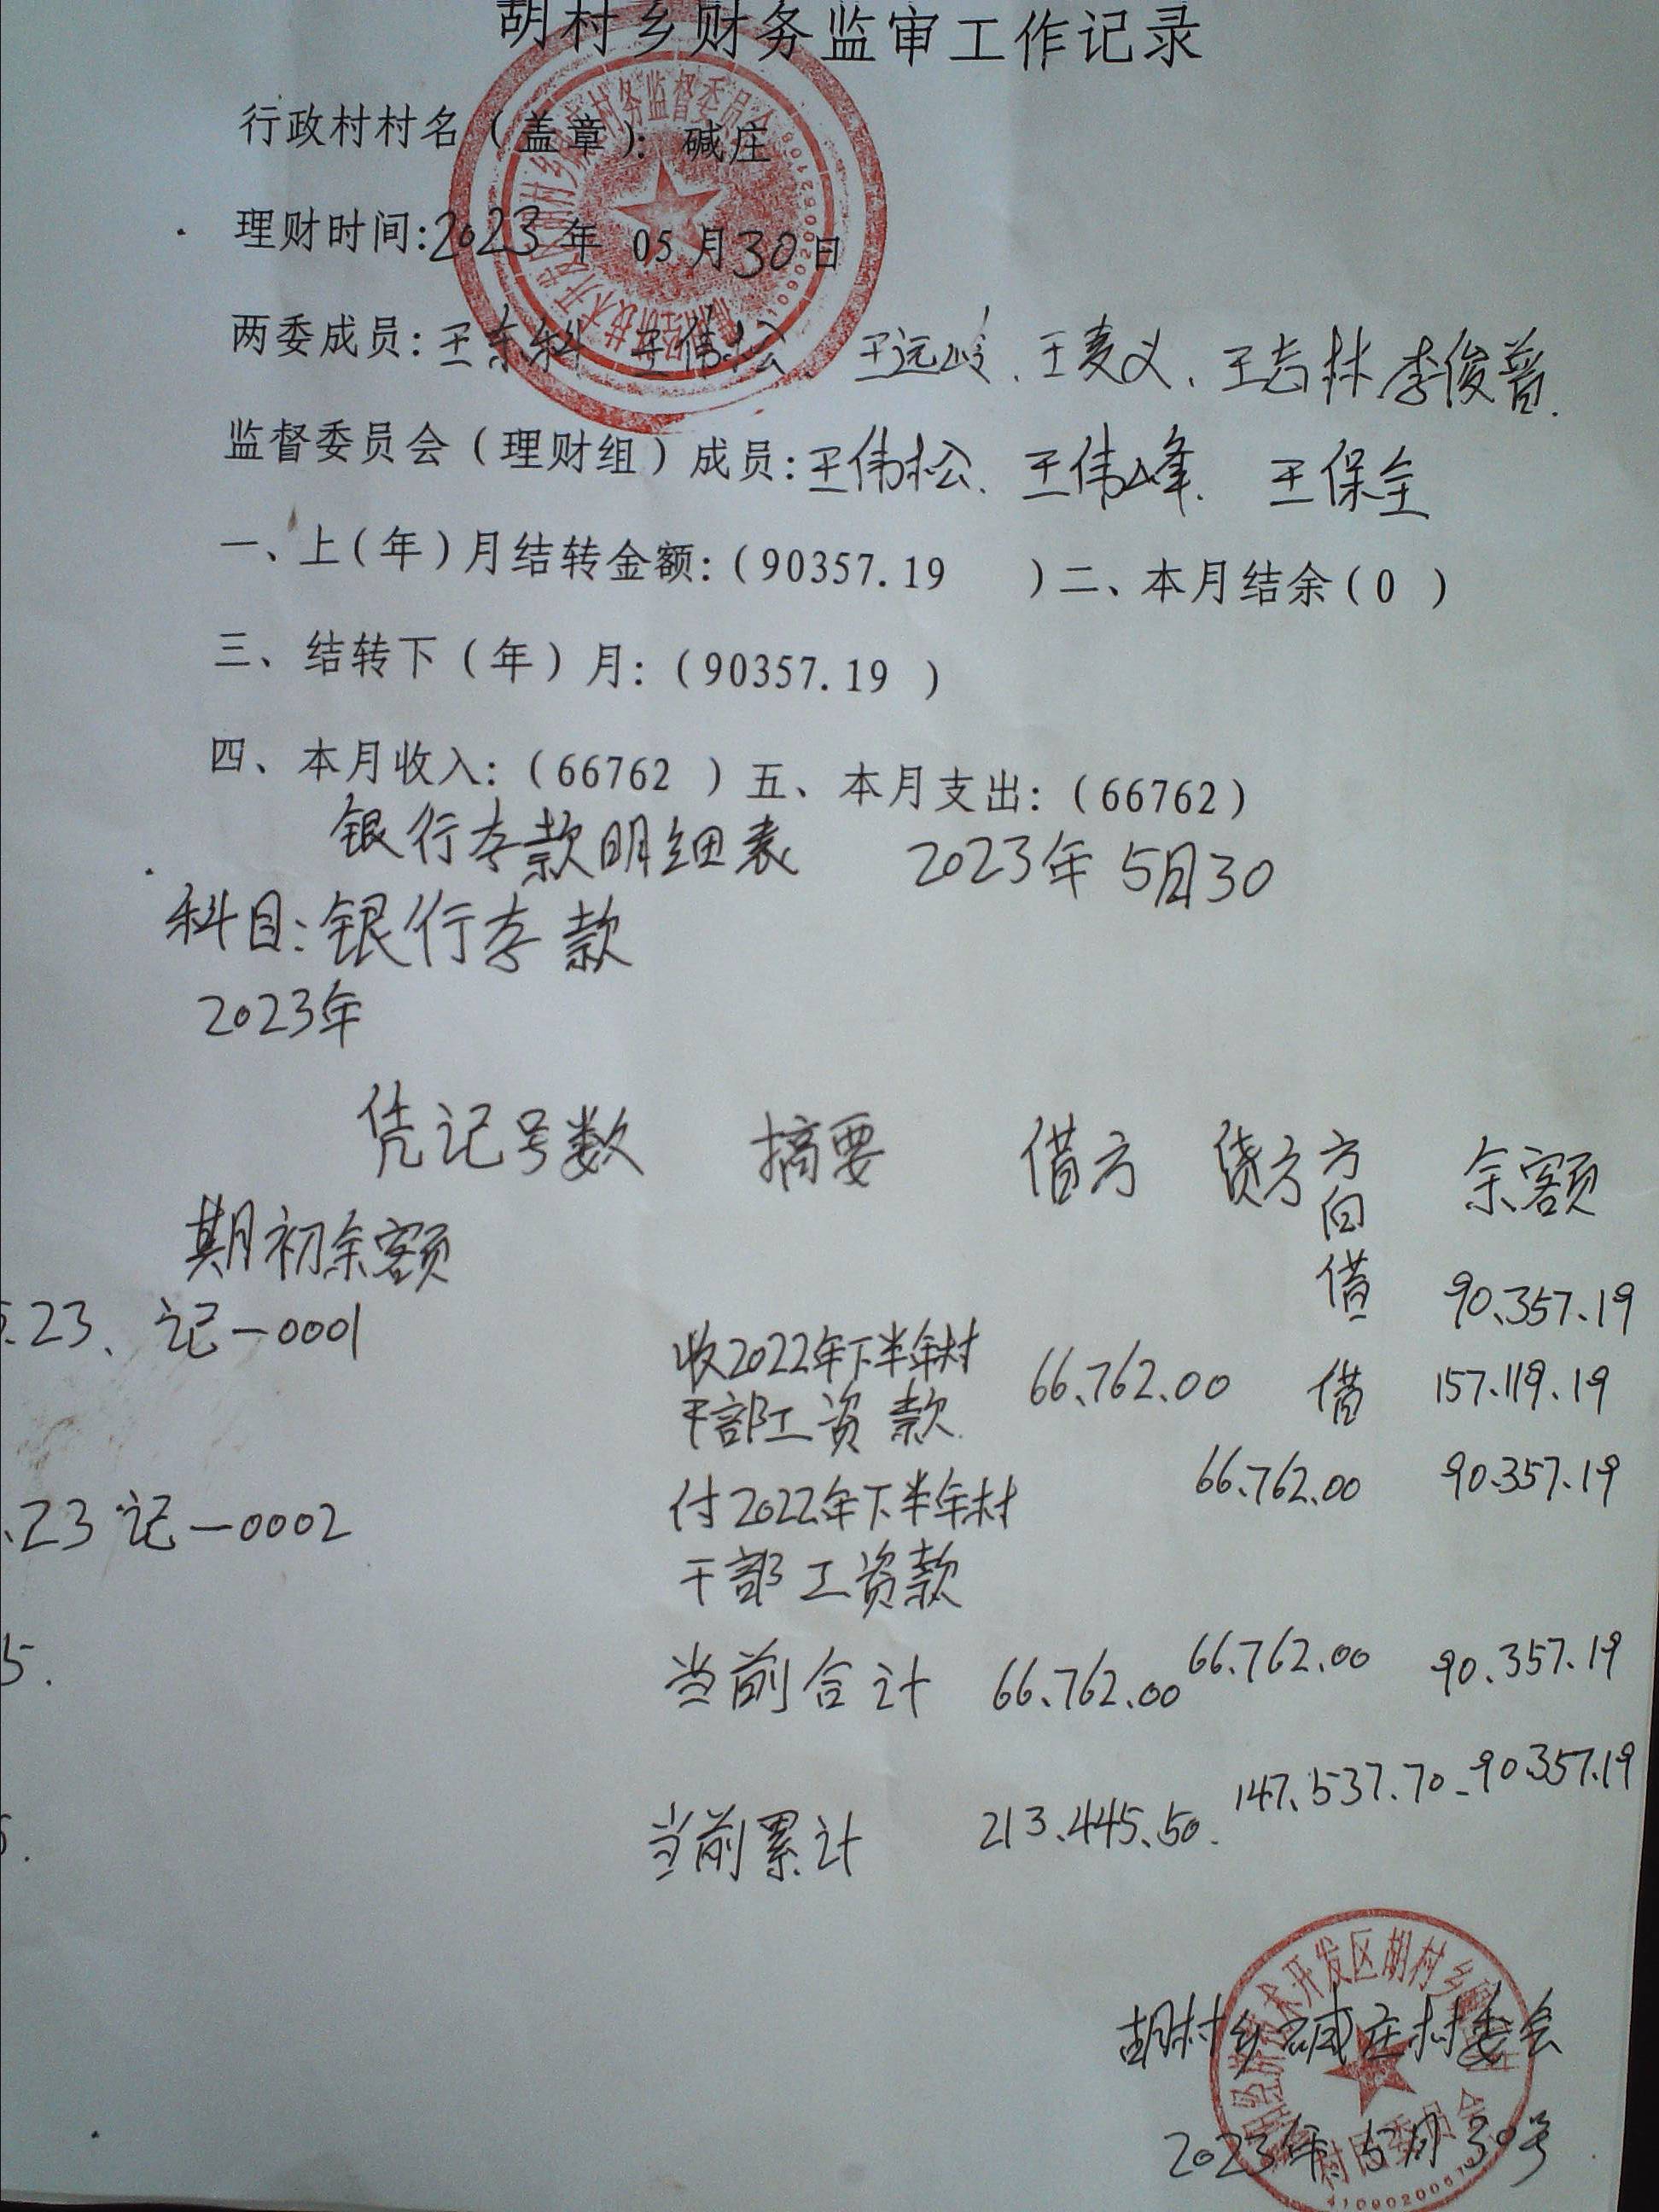 胡村乡财务监审工作记录
行政村村名（盖章）：碱庄
理财时间:2023年 05月30日
两委成员:王东科 王伟松、王远岭、王麦义、王志林 李俊普.
监督委员会（理财组）成员:王伟松、王伟峰、王保全
一、上(年)月结转金额:(90357.19 )二、本月结余(0 )
三、结转下（年）月:(90357.19 )
四、本月收入:(66762 ) 五、本月支出:(66762)
银行存款明细表 2023年5月30
科目:银行存款
2023年
凭记号数 摘要 借方 贷方 方向 余额
期初余额 借 90.357.19
.23、记—0001 收2022年下半年村 66.762.00 借 157.119.19
干部工资款.
.23 记—0002 付2022年下半年村 66.762.00 90.357.19
干部工资款
5. 当前合计 66.762.00 66.762.00 90.357.19
当前累计 213.445.50. 147.537.70 90357.19
胡村乡碱庄村委会
2023年5月30号
术开发区胡村乡
村民委员会